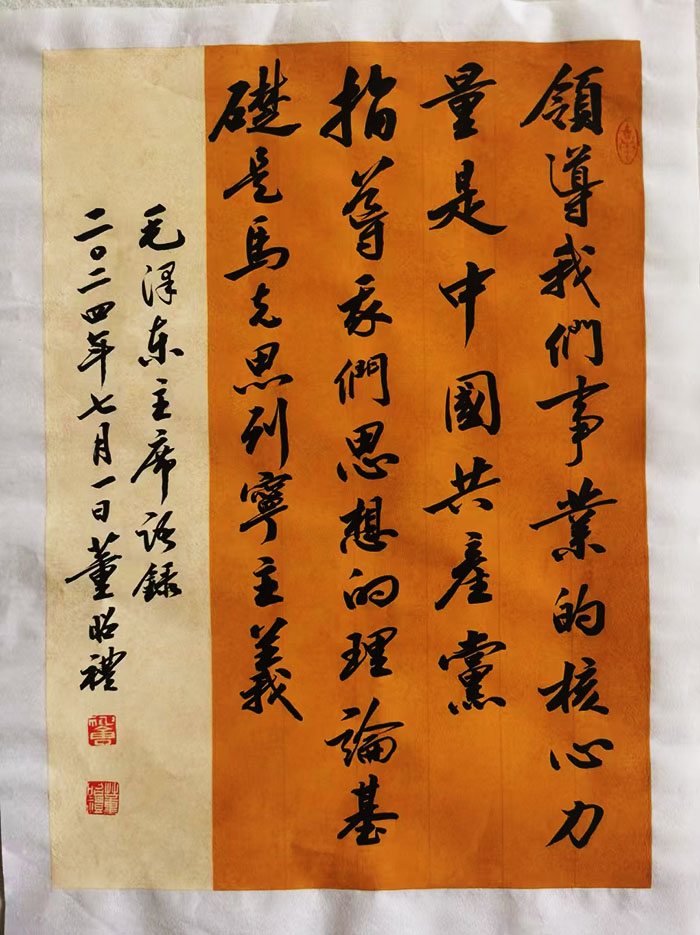 領導我們事業的核心力
量是中國共產黨
指導我們思想的理論基
礎是馬克思列寧主義
毛泽东主席语録
二〇二四年七月一日董昭禮